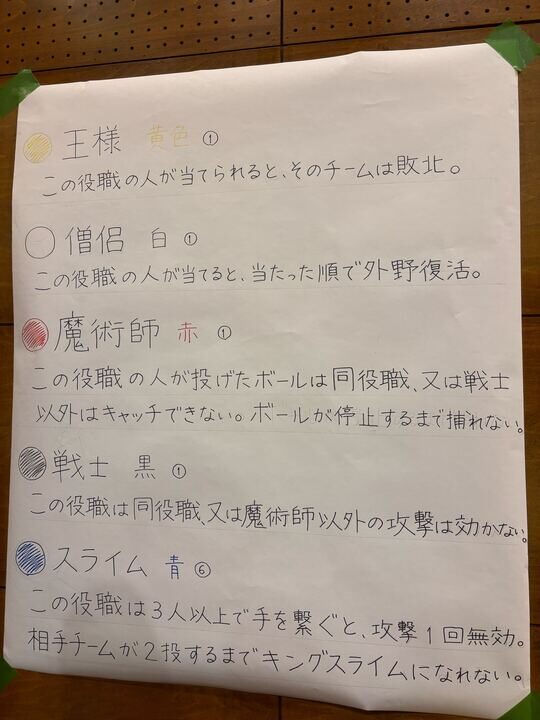 王様 黄色 ①
この役職の人が当てられると、そのチームは敗北。
僧侶 白 ①
この役職の人が当てると、当たった順で外野復活。
魔術師 赤 ①
この役職の人が投げたボールは同役職、又は戦士
以外はキャッチできない。ボールが停止するまで捕れない。
戦士 黒 ①
この役職は同役職、又は魔術師以外の攻撃は効かない。
スライム 青 ⑥
この役職は3人以上で手を繋ぐと、攻撃1回無効。
相手チームが2投するまでキングスライムになれない。